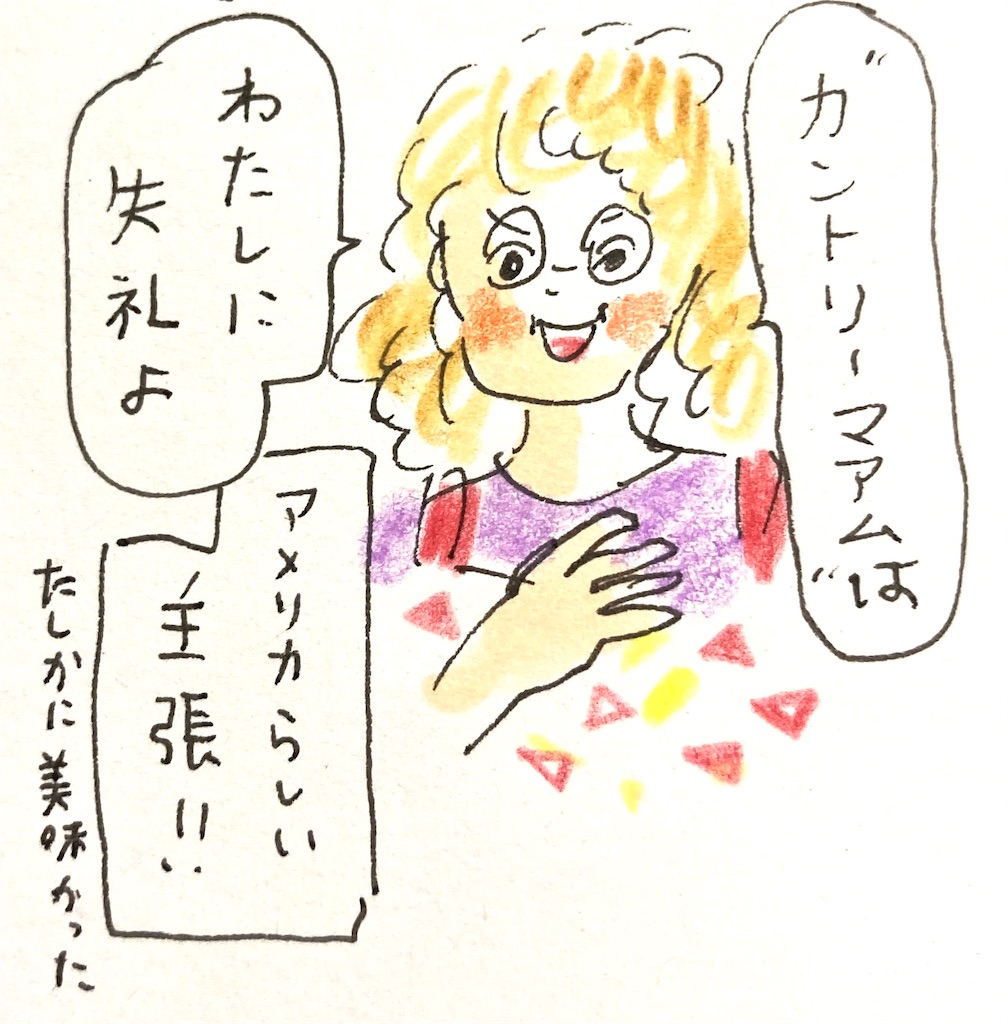 "カントリーマアム"は
わたしに
失礼よ
アメリカらしい
主張!!
たしかに美味かった